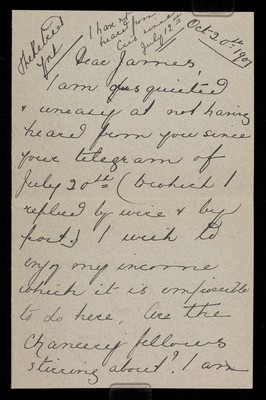 I have not
heard from
since
July 12th
Oct. 20th 1901
Dear James,
I am disquieted
& uneasy at not having
heard from you since
your telegram of
July 20th (to which I
replied by wire & by
post.) I wish to
enjoy my income
which it is impossible
to do here. Are the
Chancery fellows
stirring about? I am